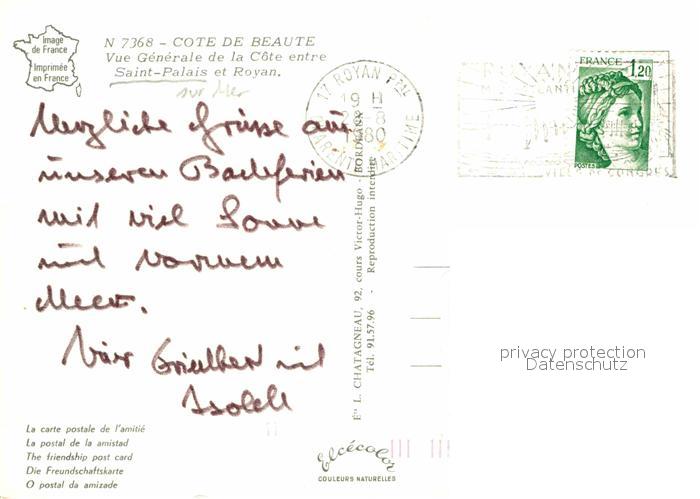 Image
de France
Imprimée
en France
N 7368 - COTE DE BEAUTE
Vue Générale de la Côte entre
Saint-Palais et Royan.
sur Mer
17 ROYAN PPAL
19 H
28-8
1980
CHARENTE MARITIME
FRANCE 1,20
POSTES
VILLE DE CONGRES
Herzliche Grüsse aus
unseren Badeferien
mit viel Sonne
und warmem
Meer.
mit
Isolde
Éts L. CHATAGNEAU, 92, cours Victor-Hugo - BORDEAUX
Tél. 91.57.96 - Reproduction interdite
privacy protection
Datenschutz
La carte postale de l'amitié
La postal de la amistad
The friendship post card
Die Freundschaftskarte
O postal da amizade
Elcécolor
COULEURS NATURELLES